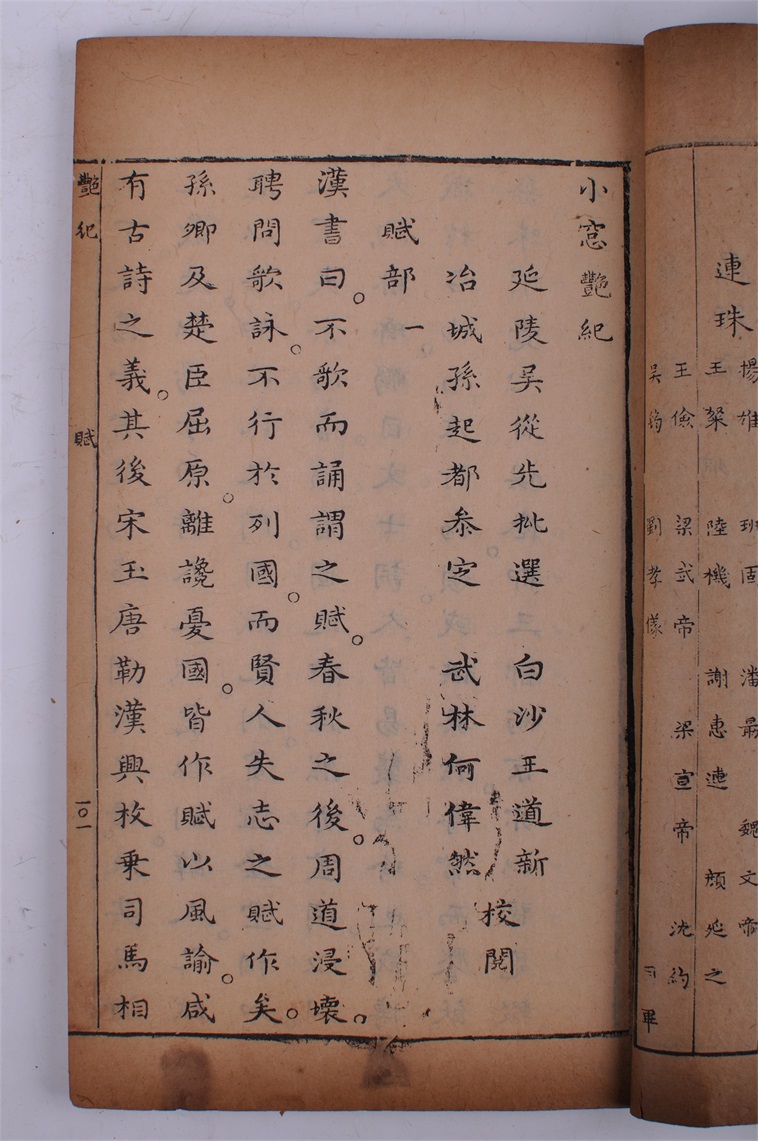 連珠
揚雄　班固　潘最　魏文帝
王粲　陸機　謝惠連　顏延之
王儉　梁武帝　梁宣帝　沈約
吳筠　劉孝儀
畢
小窓艷紀
延陵吳從先批選　白沙王道新
冶城孫起都叅定　武林何偉然
校閱
賦部一
漢書曰。不歌而誦謂之賦。春秋之後。周道浸壞。
聘問歌詠。不行於列國。而賢人失志之賦作矣。
孫卿及楚臣屈原。離讒憂國。皆作賦以風諭。咸
有古詩之義。其後宋玉唐勒漢興枚乗司馬相
艷紀　賦　一〇一